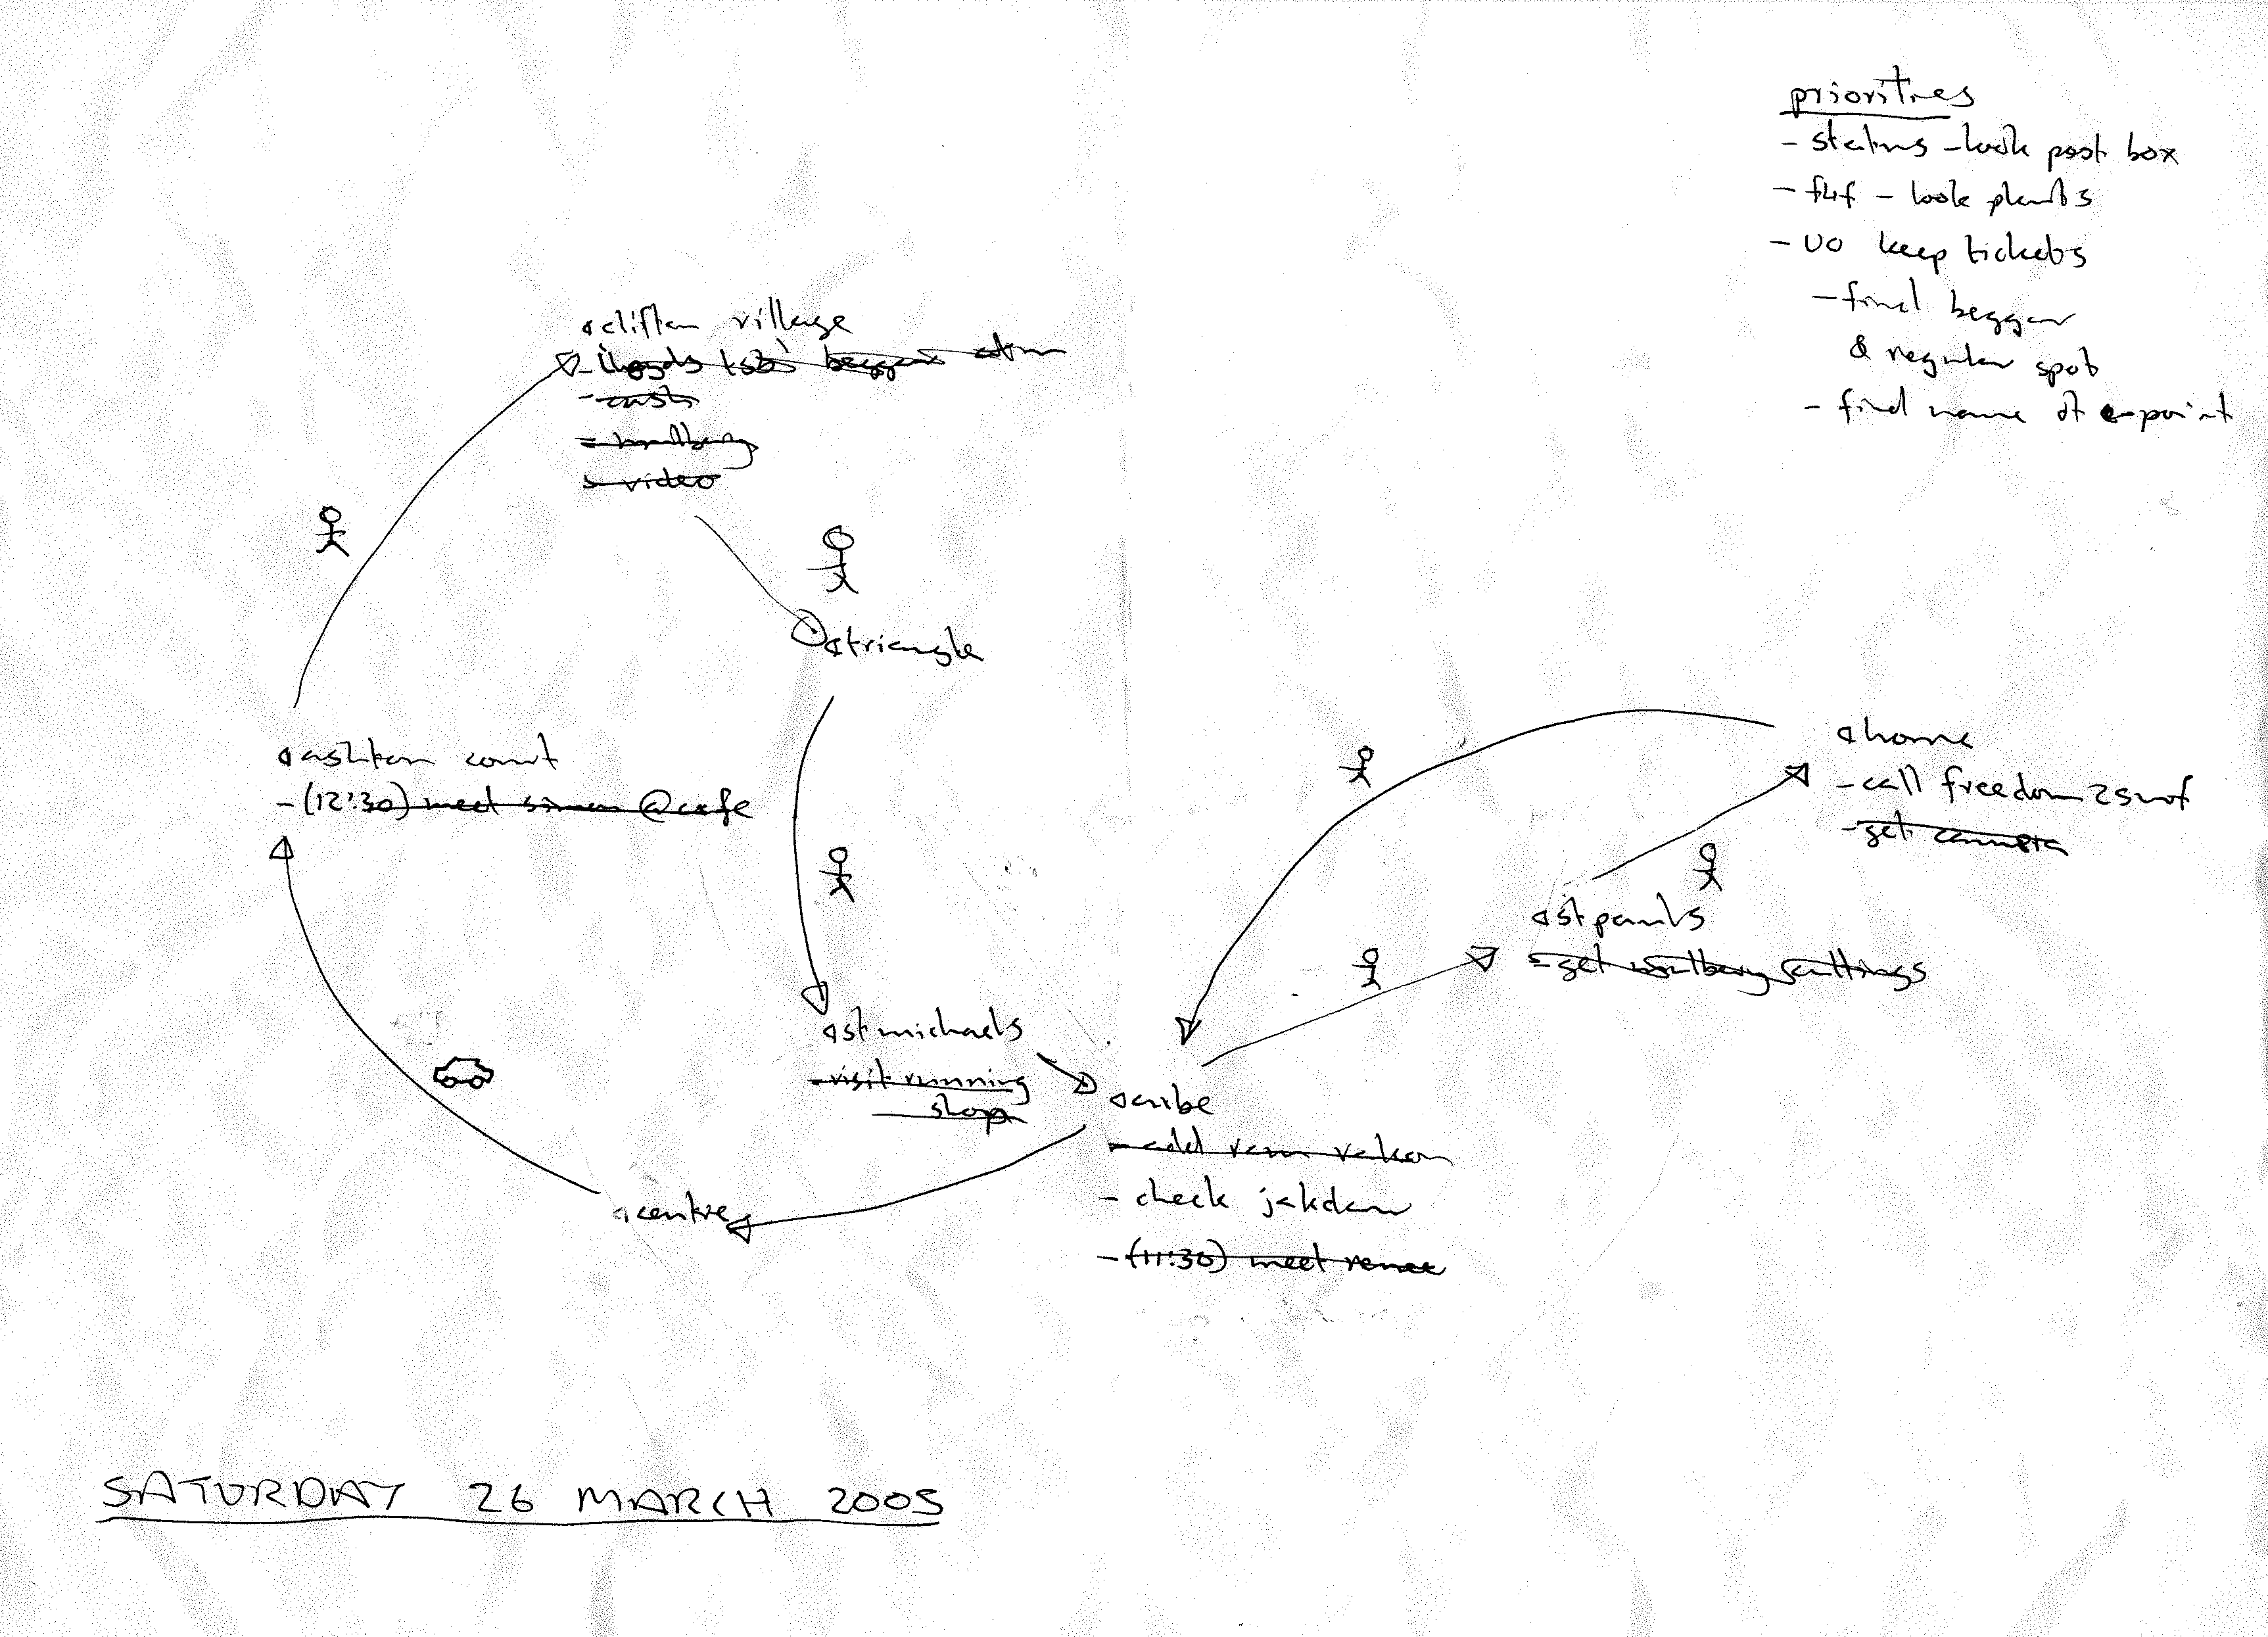 priorities
- status - look post box
- f4f - look plants
- UO keep tickets
- find beggar
& regular spot
- find name of e-point
clifton village
- lloyds tsb beggar atm
- cash
- mulberry
- video
triangle
ashton court
- (12:30) meet simon @ cafe
home
- call freedom2surf
- get camera
st pauls
- get mulberry cuttings
st michaels
- visit running
shop
cube
- add
- check
- (11:30) meet renee
centre
SATURDAY 26 MARCH 2005